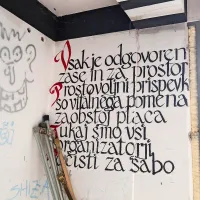 Vsak je odgovoren
zase in za prostor
Prostovoljni prispevk
so vitalnega pomena
za obstoj placa
Tukaj smo vsi
organizatorji
čisti za sabo
SHIZA